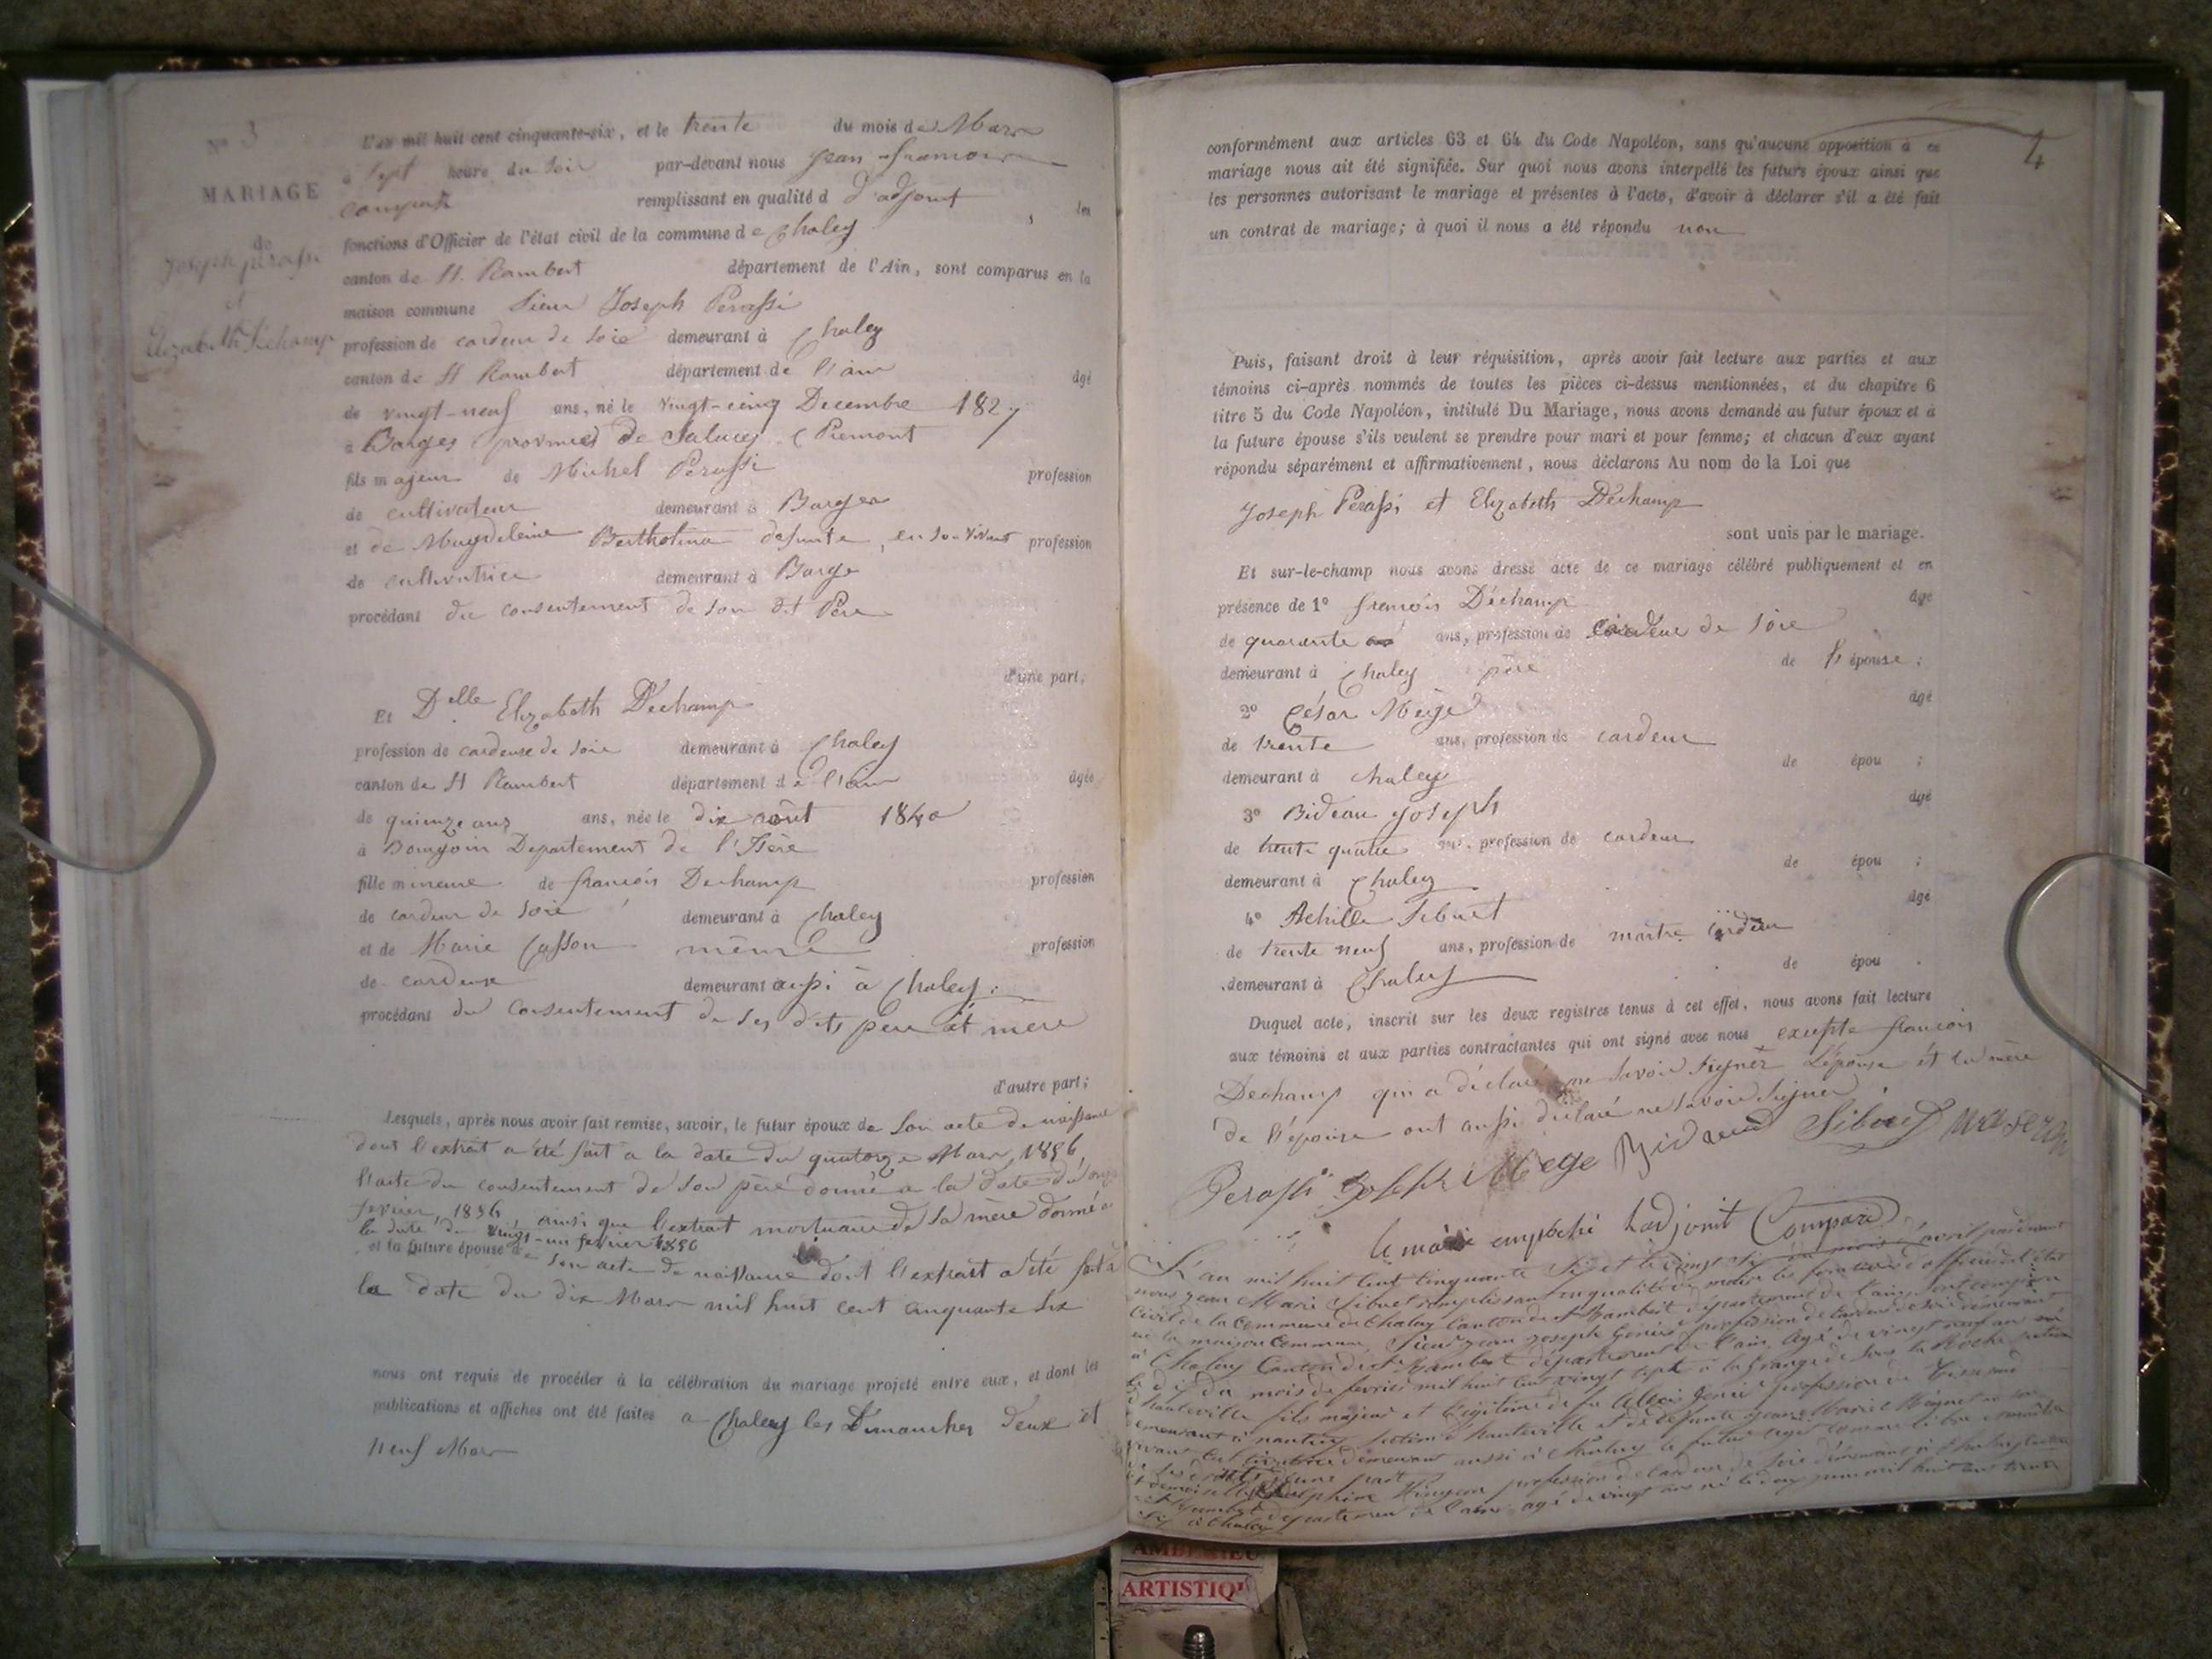 N° 3
MARIAGE
de
Joseph Perassi
et
Elizabeth Déchamp
L'an mil huit cent cinquante-six, et le trente du mois de Mars
à sept heure du soir par-devant nous Jean françois
Compare remplissant en qualité d d'adjoint , les
fonctions d'Officier de l'état civil de la commune de Chaley
canton de St. Rambert département de l'Ain, sont comparus en la
maison commune Sieur Joseph Perassi
profession de cardeur de soie demeurant à Chaley
canton de St Rambert département de l'ain âgé
de vingt-neuf ans, né le vingt-cinq Decembre 1827
à Barges province de Saluces (Piemont
fils majeur de Michel Perassi profession
de cultivateur demeurant à Barges
et de Magdeleine Bertholina defunte, en son vivant profession
de cultivatrice demeurant à Barge
procédant du consentement de son dit Père
d'une part;
Et Delle Elizabeth Déchamp
profession de cardeuse de soie demeurant à Chaley
canton de St Rambert département de l'ain âgée
de quinze ans ans, née le dix août 1840
à Bourgoin Departement de l'Isère
fille mineure de françois Dechamp profession
de cardeur de soie demeurant à Chaley
et de Marie Casson même profession
de cardeuse demeurant aussi à Chaley.
procédant du consentement de ses dits père et mère
d'autre part;
Lesquels, après nous avoir fait remise, savoir, le futur époux de son acte de naissance
dont l'extrait a été fait a la date du quatorze Mars, 1856,
l'acte du consentement de son père donné a la date du onze
fevrier, 1856 ainsi que l'extrait mortuaire de sa mère donné a
la date du vingt-un fevrier 1856
et la future épouse de son acte de naissance dont l'extrait a été fait à
la date du dix Mars mil huit cent cinquante six
nous ont requis de procéder à la célébration du mariage projeté entre eux, et dont les
publications et affiches ont été faites a Chaley les Dimanches deux et
neuf Mars
4
conformément aux articles 63 et 64 du Code Napoléon, sans qu'aucune opposition à ce
mariage nous ait été signifiée. Sur quoi nous avons interpellé les futurs époux ainsi que
les personnes autorisant le mariage et présentes à l'acte, d'avoir à déclarer s'il a été fait
un contrat de mariage; à quoi il nous a été répondu non
Puis, faisant droit à leur réquisition, après avoir fait lecture aux parties et aux
témoins ci-après nommés de toutes les pièces ci-dessus mentionnées, et du chapitre 6
titre 5 du Code Napoléon, intitulé Du Mariage, nous avons demandé au futur époux et à
la future épouse s'ils veulent se prendre pour mari et pour femme; et chacun d'eux ayant
répondu séparément et affirmativement, nous déclarons Au nom de la Loi que
Joseph Perassi et Elizabeth Déchamp
sont unis par le mariage.
Et sur-le-champ nous avons dressé acte de ce mariage célébré publiquement et en
présence de 1° françois Déchamp âgé
de quarante ans, profession de cardeur de soie
demeurant à Chaley père de l'épouse;
2° César Mège âgé
de trente ans, profession de cardeur
demeurant à Chaley de épou ;
3° Bideau Joseph âgé
de trente quatre ans, profession de cardeur
demeurant à Chaley de épou ;
4° Achille Sibuet âgé
de trente neuf ans, profession de maître cardeur
demeurant à Chaley de épou .
Duquel acte, inscrit sur les deux registres tenus à cet effet, nous avons fait lecture
aux témoins et aux parties contractantes qui ont signé avec nous excepté françois
Dechamp qui a déclaré ne savoir signer L'épouse et la mère
de l'épouse ont aussi déclaré ne savoir signer
Perassi Joseph Mege Bideaud Sibuet
le maire empeché l'adjoint Compare
L'an mil huit cent cinquante six et le vingt six du mois d'avril pardevant
nous Jean Marie Sibuet remplissant en qualité de maire les fonctions d'officier de l'état
civil de la Commune de Chaley Canton de St Rambert département de l'ain, sont comparu
en la maison Commune Sieur Jean Joseph Genier profession de cardeur de soie demeurant
à Chaley Canton de St Rambert département de l'ain agé de vingt neuf ans né
le dix du mois de fevrier mil huit cent vingt sept à la Grange de sous la Roche
d'hauteville fils majeur et légitime de profession de Tisserand
demeurant à nantuy hauteville et de défunte Jeanne Marie
vivant Cultivatrice demeurant aussi à
de ses droits d'une part
et demoiselle Delphine profession de cardeuse de soie demeurant à Chaley
St Rambert département de l'ain agé de vingt ans né le deux juin mil huit cent trente
six à Chaley
ARTISTIQU